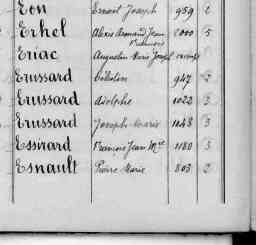 Eon Ernest Joseph 959 2
Erhel Alexis Armand Jean 2000 5
Eriac Augustin Marie Joseph
Erussard Célestin 947 2
Erussard Adolphe 1022 3
Erussard Joseph Marie 1048 3
Essirard Francois Jean Mie 1180 3
Esnault Pierre Marie 803 2